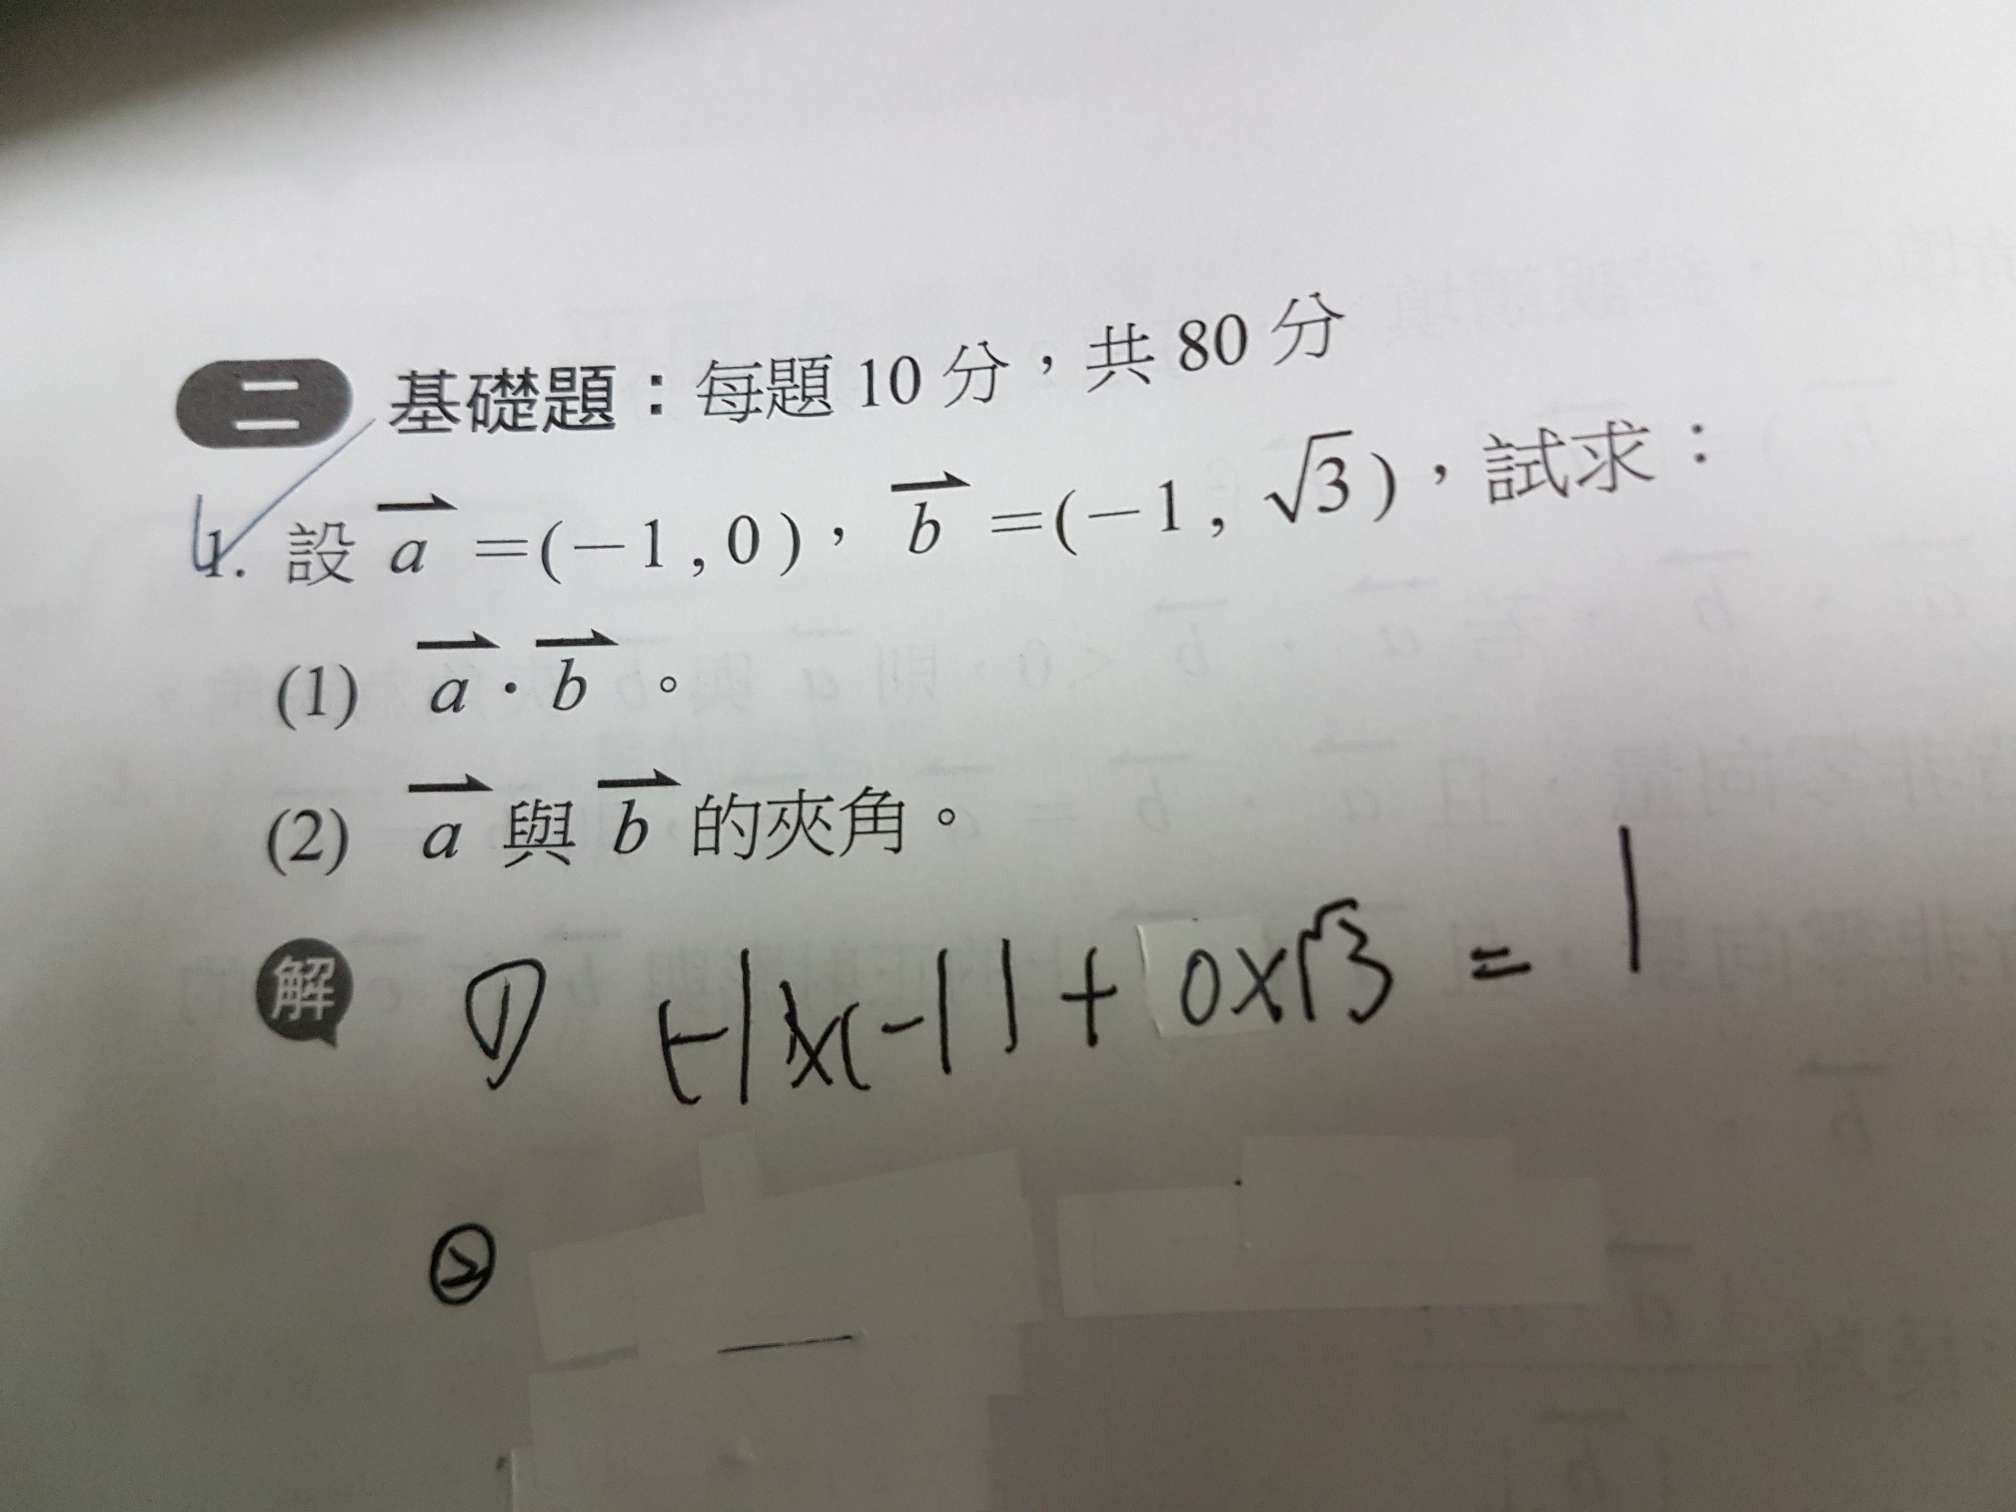 二 基礎題：每題 10 分，共 80 分
1. 設 a⇀ =(−1 , 0 )， b⇀ =(−1 , √3 )，試求：
(1) a⇀ · b⇀ 。
(2) a⇀ 與 b⇀ 的夾角。
解 ① (-1)x(-1)+0x√3 = 1
②